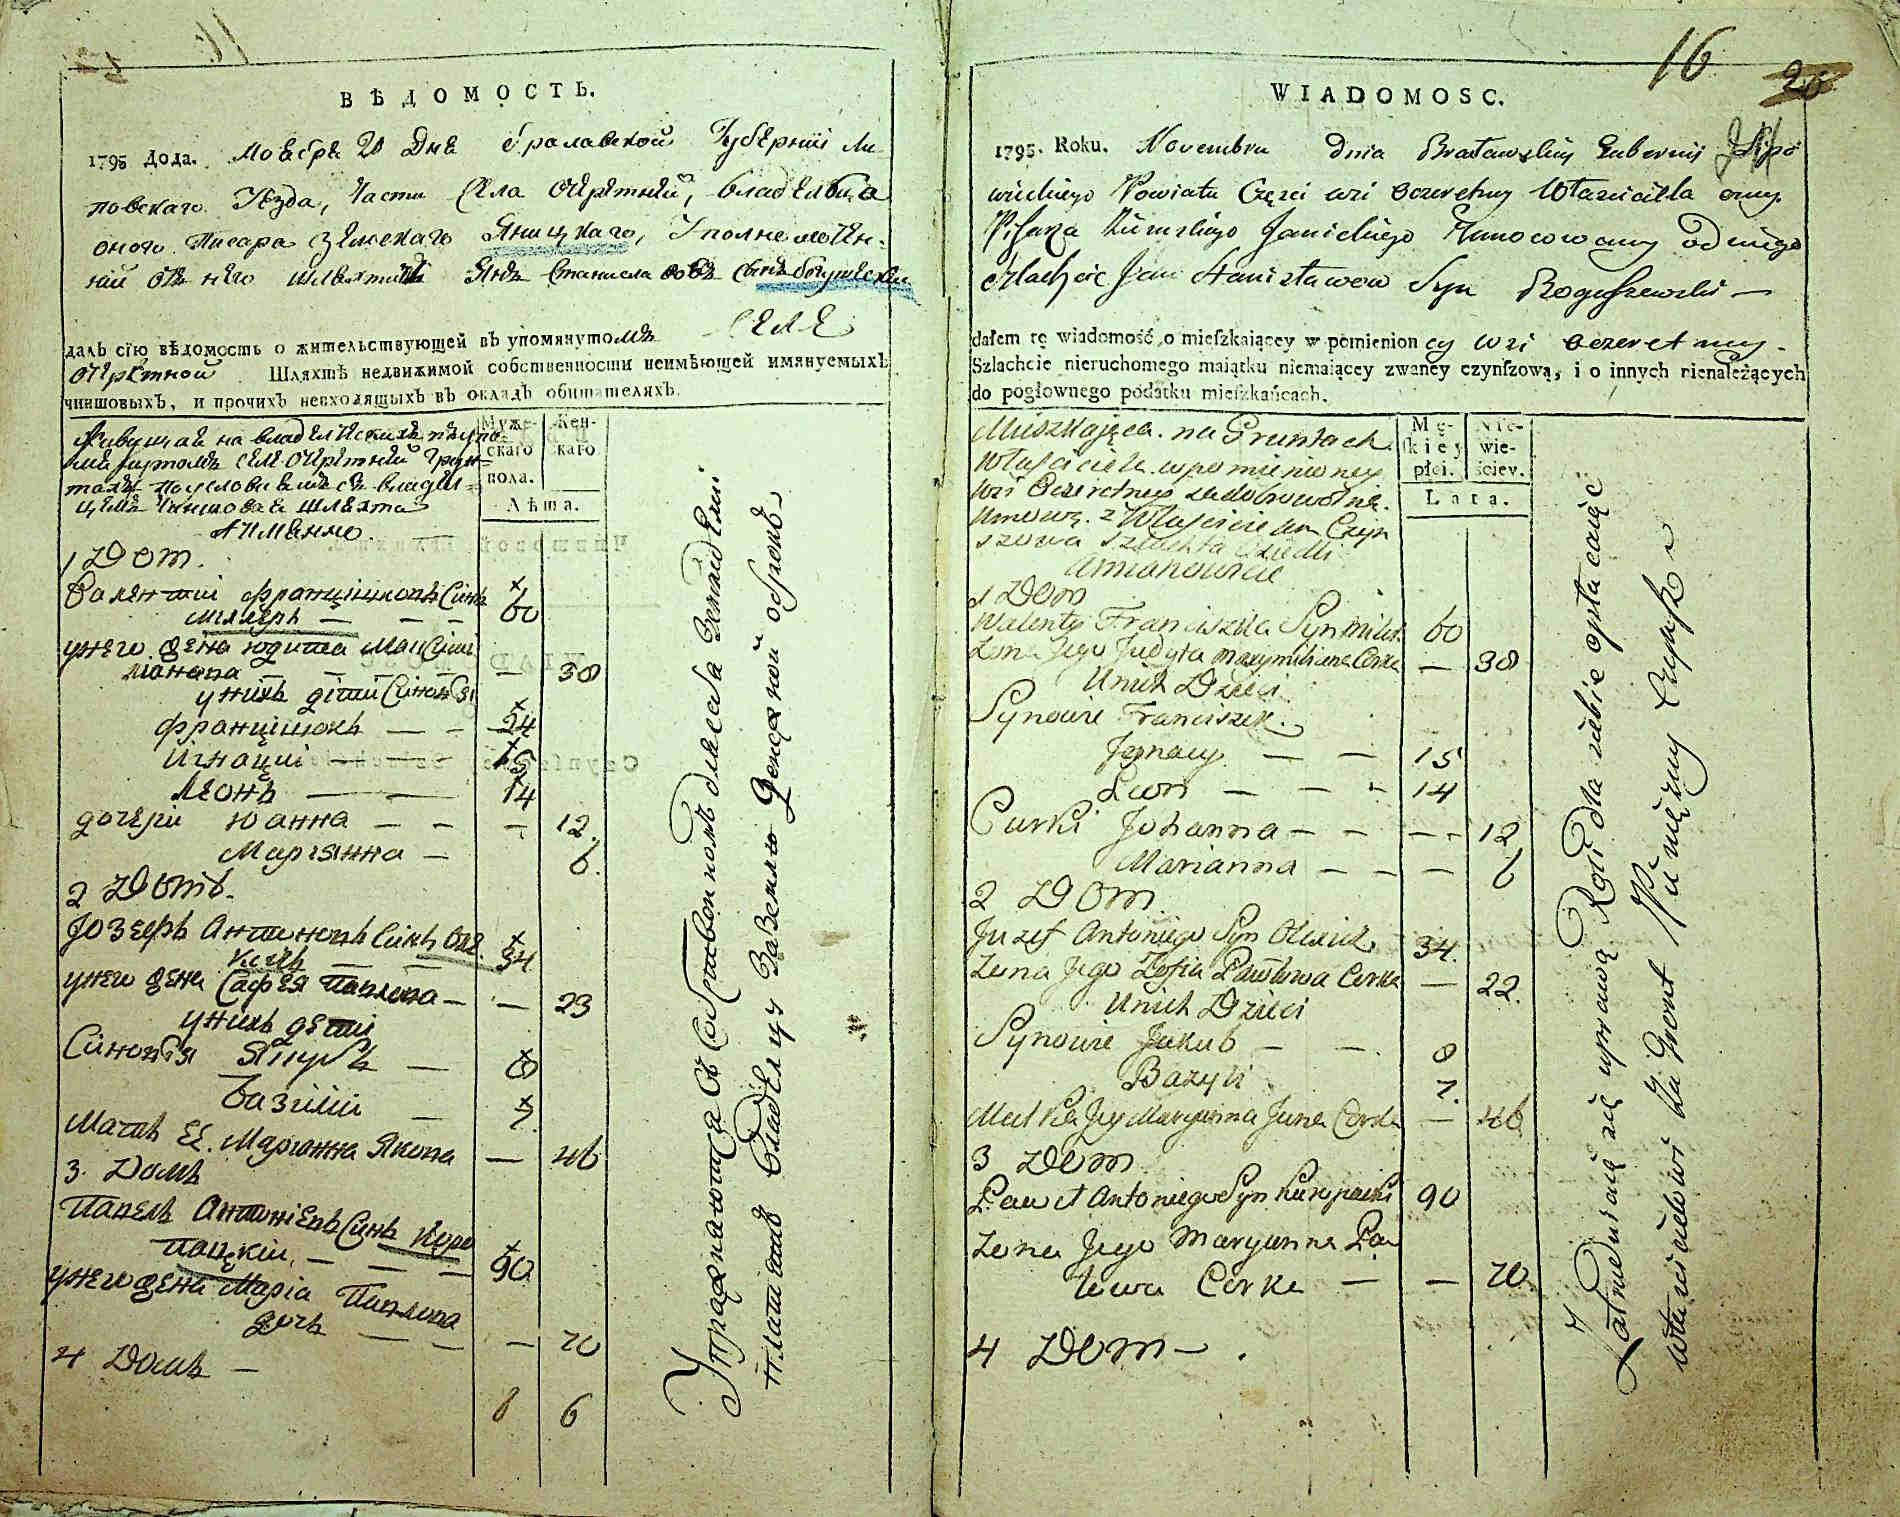 ВѢДОМОСТЬ.
1795 Года. Ноября 20 Дня Браславской Губернии Ли
повскаго Уезда, Части Села Очеретней, владельца
оного Писара Земского Яницкаго, Уполномочен-
ний отъ него шляхтичъ Янъ Станиславовъ Синъ Богушевски
далъ сїю вѣдомость о жительствующей въ упомянутомъ СЕЛЕ
Очеретной Шляхтѣ недвижимой собственности неимѣющей имянуемыхъ
чиншовыхъ, и прочихъ невходящыхъ въ окладъ обитателяхъ.
Муже-
скаго
пола.
Жен-
каго
Лѣта.
Живущая на владелческихъ
селе Очеретней грун-
тахъ
чиншовая шляхта
Аименно
1 Дом.
Валентий Францишковъ Синъ
Миллеръ — 60
унего жена Юдита Максими
лианова — 38
унихъ дети Синовя
Францишокъ — 24
Игнаций — 15
Леонъ — 14
дочери Юанна — 12.
Марианна — 6.
2 Домъ.
Іозефъ Антоновъ Синъ Оле
34
унего жена Софея Павлова — 23
унихъ дети
Синовя Якубъ — 8
Базили — 7.
Матъ ее Марианна Якова — 46
3. Домъ
Павелъ Антониевъ Синъ Куро
пацкий — 90
унего жена Мария Павлова
дочь — 70
4 Домъ —
8 6
Упражняются Въ Собственномъ для себя Земледелии
платятъ Владелцу За Землю Денежной оброкъ
16
26
WIADOMOSC.
1795. Roku. Novembra Dnia Bracławskiy Gubernij Lipo
wieckiego Powiatu Części wsi Oczeretny Własciciela oney
Pisarza Ziemskiego Janickiego Umocowany od niego
Szlachcic Jan Stanisławow Syn Boguszewski —
dałem tę wiadomość o mieſzkaiącey w pomienioncy wsi Oczeretney.
Szlachcie nieruchomego maiątku niemaiącey zwaney czynſzową, i o innych nienależących
do pogłownego podatku mieſzkańcach.
Mę-
ſkiey
płci.
Nie-
wie-
ściey.
Lata.
Mieszkaiąca na Gruntach
Własciciela wpomienioney
Wsi Oczeretney zadobrowolną
Umową z Włascicielem Czyn
szowa Szlachta
Amianowicie
1 Dom
Walenty Franciszka Syn Miler 60
Żona Jego Judyta Maxymiliana Corka — 38
Unich Dzieci
Synowie Franciszek.
Jgnacy — — 15
Leon — — 14
Curki Johanna — — 12
Marianna — — 6
2 Dom.
Juzef Antoniego Syn Olexick 34.
Żona Jego Zofia Pawłowa Corka — 22.
Unich Dzieci
Synowie Jakub — 8
Bazyli 7.
Matka Jey Maryanna Jana Corka — 46
3 Dom
Paweł Antoniego Syn Kuropacki 90
Żona Jego Maryanna Pa
włowa Corka — — 70.
4 Dom — .
Zatrudniaią się uprawą Roli dla siebie opłacaiąc
własicielowi za Gront Pinięzny Czynsz